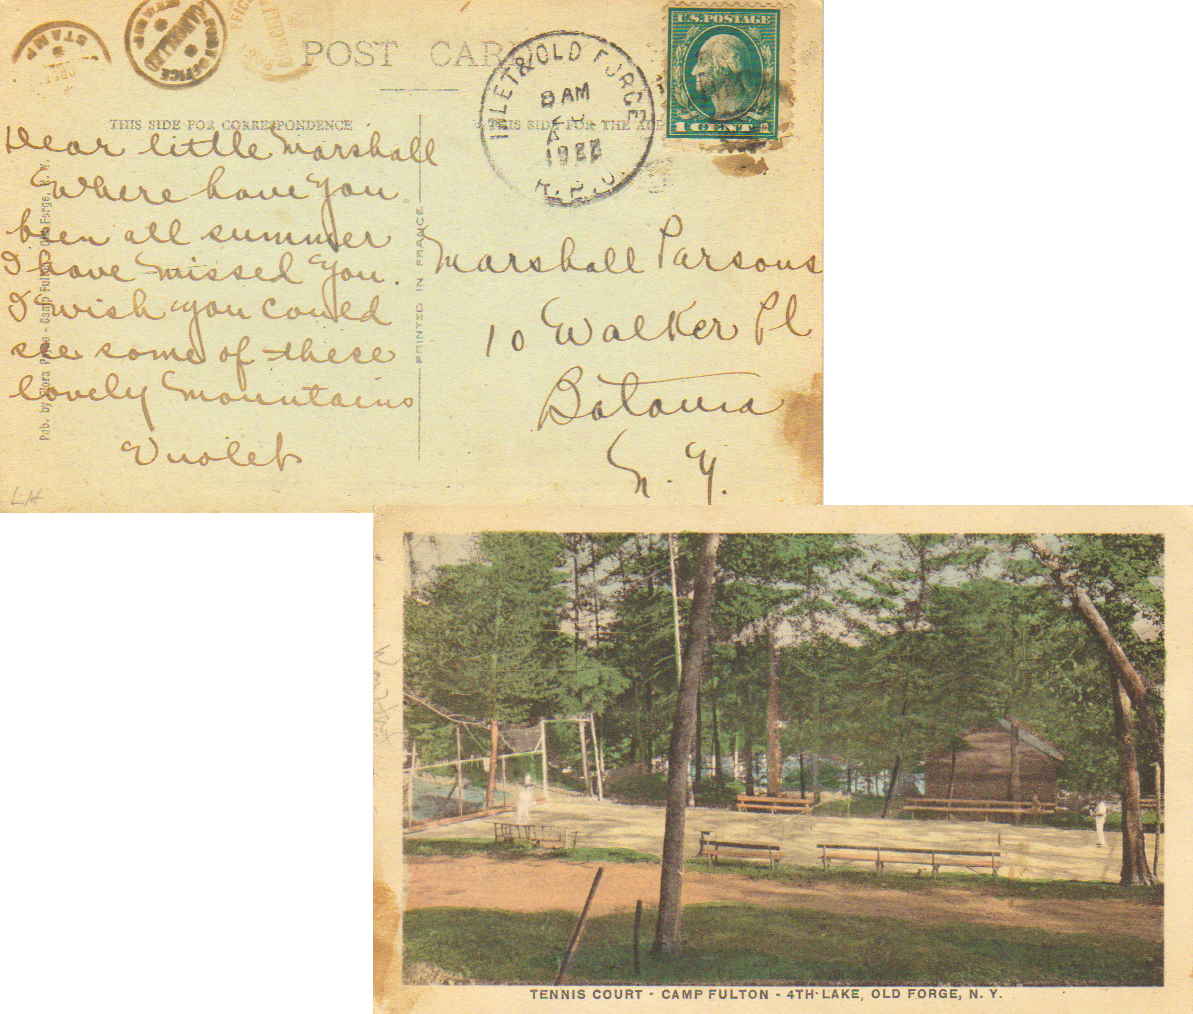 POST CARD
THIS SIDE FOR CORRESPONDENCE
THIS SIDE FOR THE
U.S. POSTAGE
1 CENT
INLET & OLD FORGE
8 AM
R.P.O.
STAMP
POST OFFICE
CANCELLED
STAMP
Dear little Marshall
Where have you
been all summer
I have missed you.
I wish you could
see some of these
lovely Mountains
Violet
PRINTED IN FRANCE
Marshall Parsons
10 Walker Pl
Batavia
N.Y.
LH
TENNIS COURT - CAMP FULTON - 4TH LAKE, OLD FORGE, N. Y.